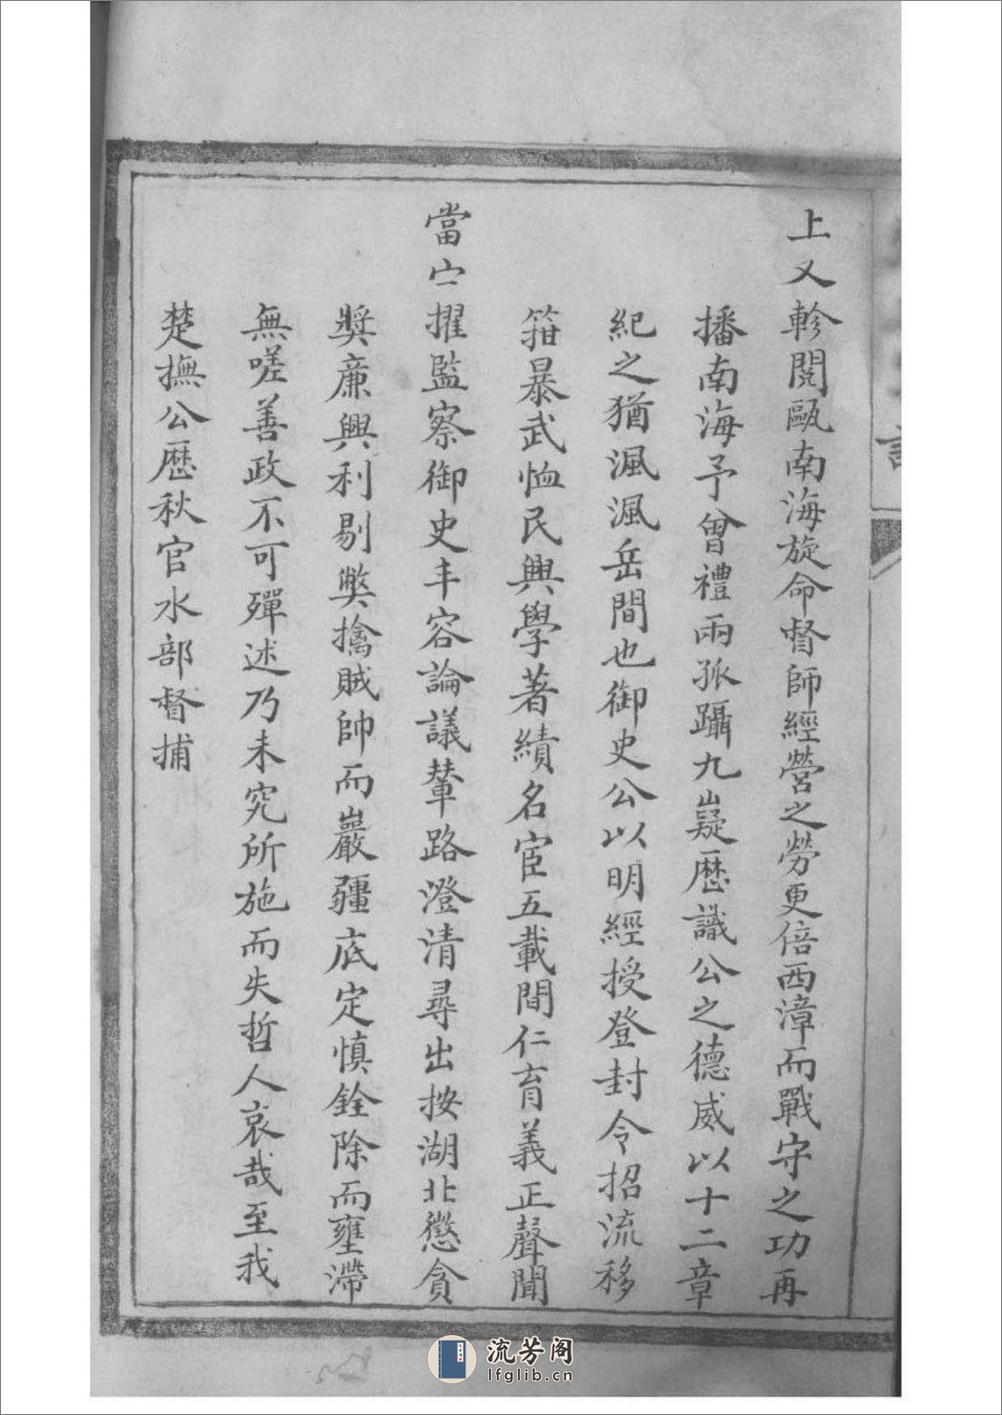 上又軫閱甌南海旋命督師經營之勞更倍西漳而戰守之功再
播南海予曾禮兩孤躡九嶷歷識公之德威以十二章
紀之猶渢渢岳間也御史公以明經授登封令招流移
箝暴武恤民興學著績名宦五載間仁育義正聲聞
當宁擢監察御史丰容論議輦路澄清尋出按湖北懲貪
獎廉興利剔獘擒賊帥而巖疆底定慎銓除而壅滯
無嗟善政不可殫述乃未究所施而失哲人哀哉至我
楚撫公歷秋官水部督捕
流芳阁
lfglib.cn